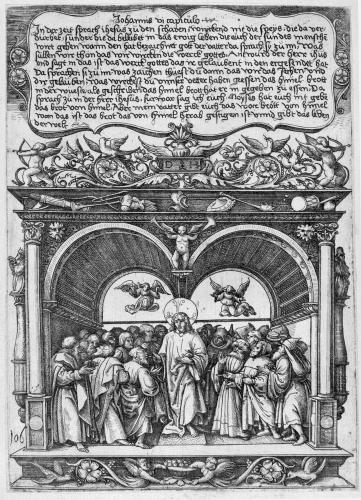 Johannis vi capitulo
In der zeit sprach ihesus zu den scharen wirckend nit die speys die da ver
dirbt sunder die da bleibt in das ewig leben die euch der sun des mensche
wirt geben wann den hat bezaichnet got der vatter da sprach sy zu im Was
sullen wir thun das wir wircken die werck gottes Antwurt der herr ihus
und sagt in das ist das werck gottes das ir gelaubent in den er gesendet hat
Da sprachen si zu im was zaichen thust du dann das wir das sehen und
dir gelauben was wirckst du unser vetter haben gegessen das himel brott
in der wuste als geschriben das himel brott hat er in gegeben zu essen Da
sprach zu in der herr ihesus fur war sag ich euch Moyses hat euch nit gebe
das brot von himel Aber mein vatter gibt euch das war brott von himel
wann das ist das brot das von himel herab gestigen ist unnd gibt das leben
der welt
106